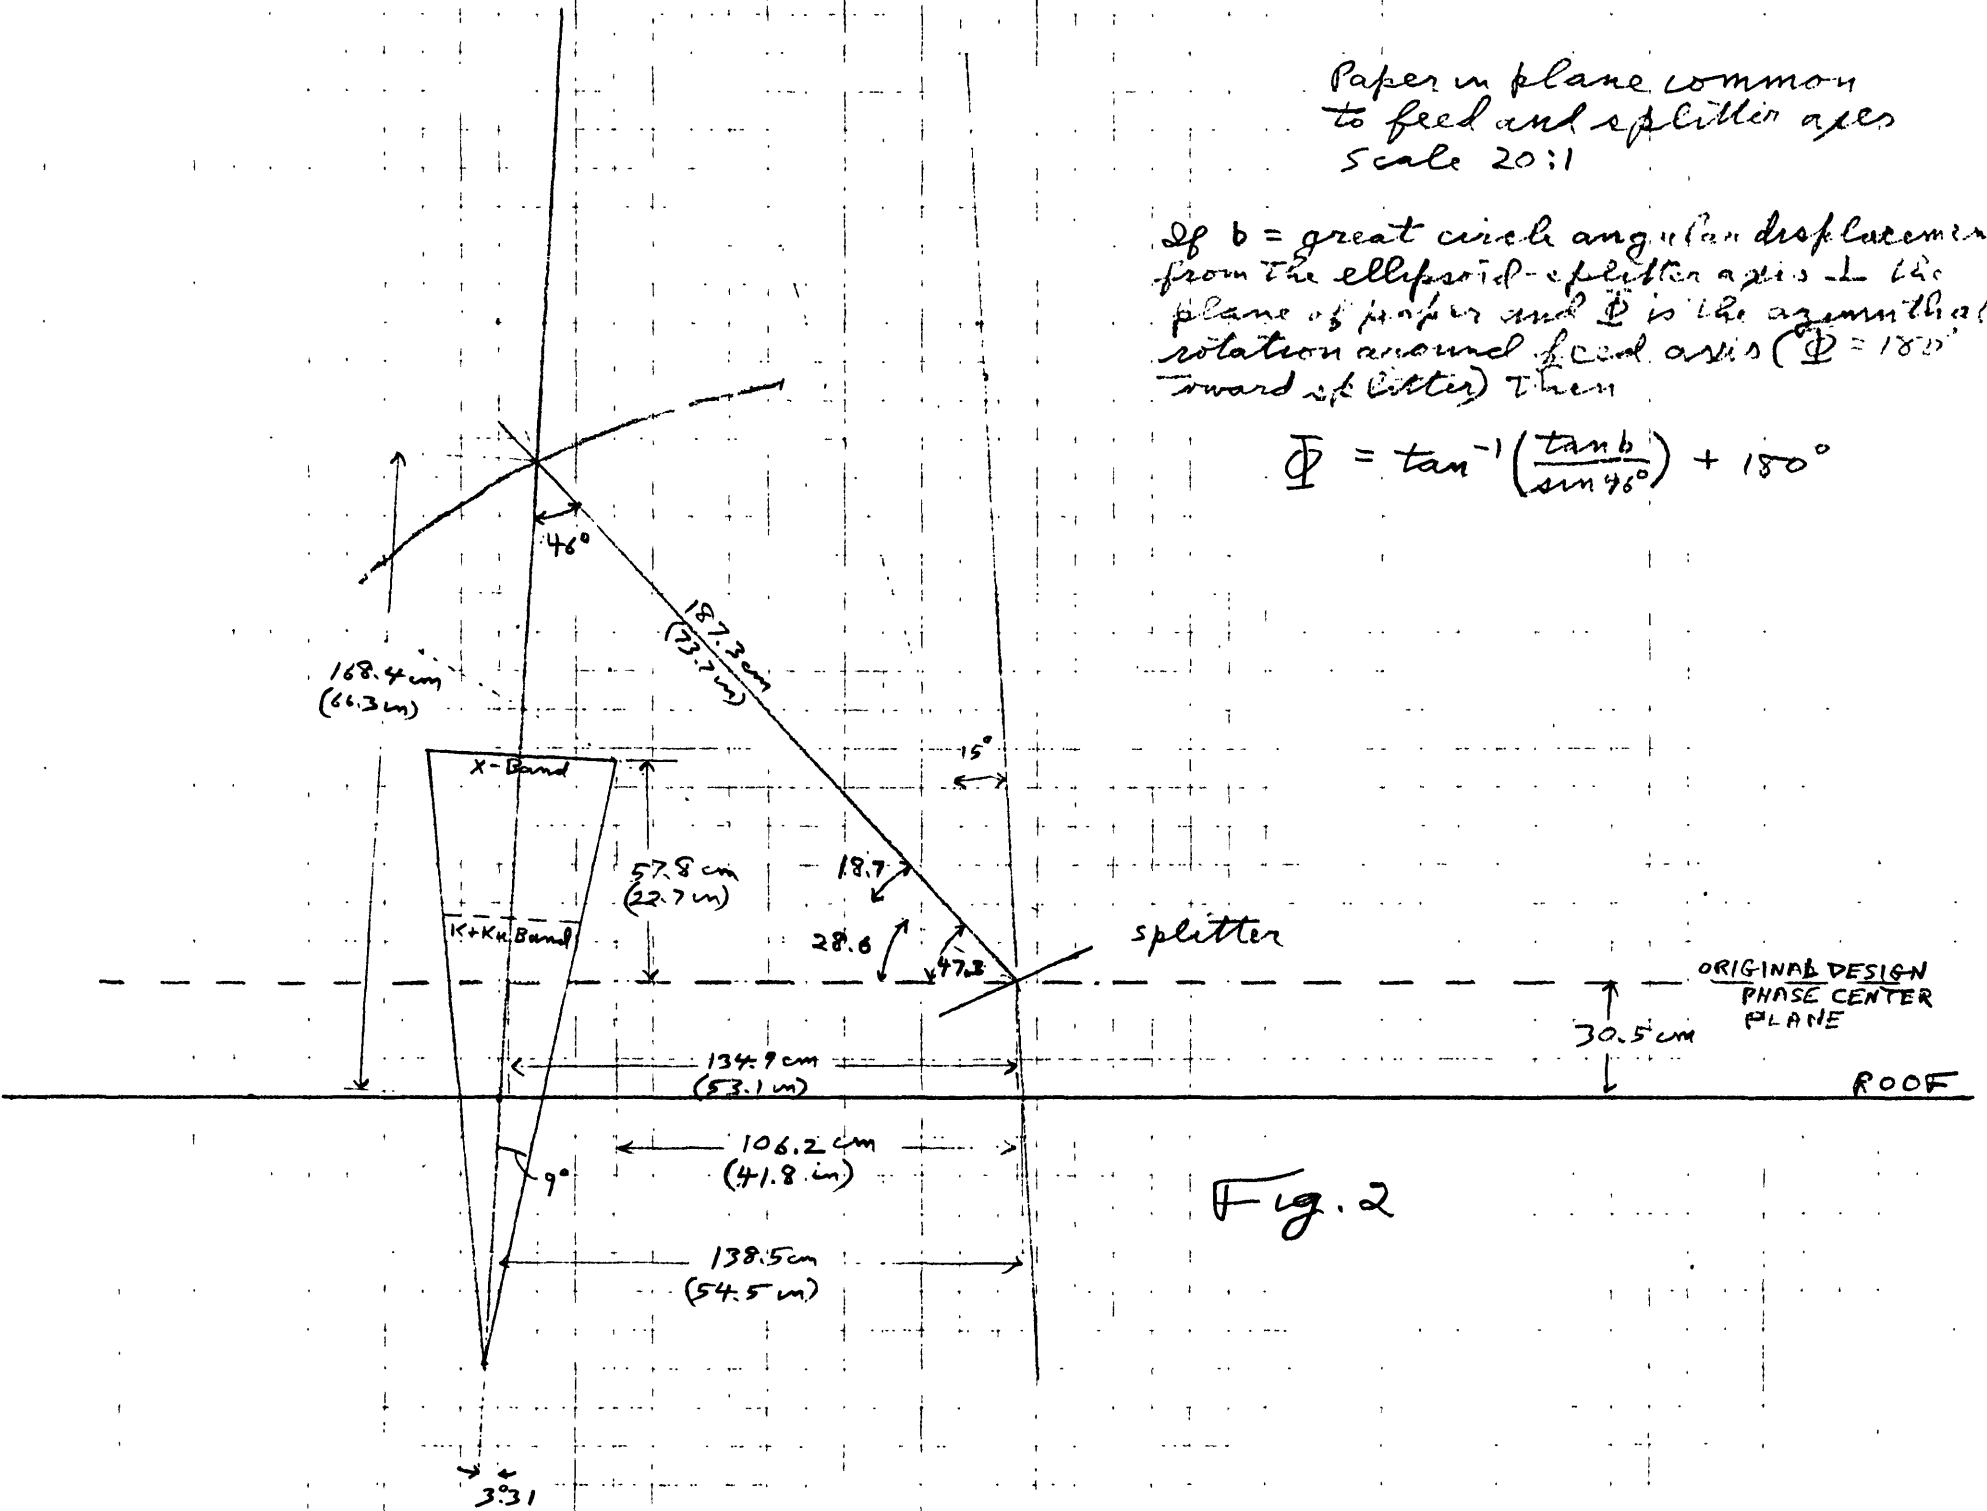 Paper in plane common
to feed and splitter axes
scale 20:1
If b = great circle angular displacemen
from the ellipsoid-splitter axis ⊥ the
plane of paper and Φ is the azimuthal
rotation around feed axis (Φ = 180°
toward splitter) Then
Φ = tan⁻¹(tan b / sin 46°) + 180°
46°
187.3 cm
(73.7 in)
168.4 cm
(66.3 in)
15°
X-Band
57.8 cm
(22.7 in)
18.7
K+Ku Band
28.6
47.3
splitter
ORIGINAL DESIGN
PHASE CENTER
PLANE
30.5 cm
134.9 cm
(53.1 in)
ROOF
106.2 cm
(41.8 in)
9°
Fig. 2
138.5 cm
(54.5 in)
3°.31